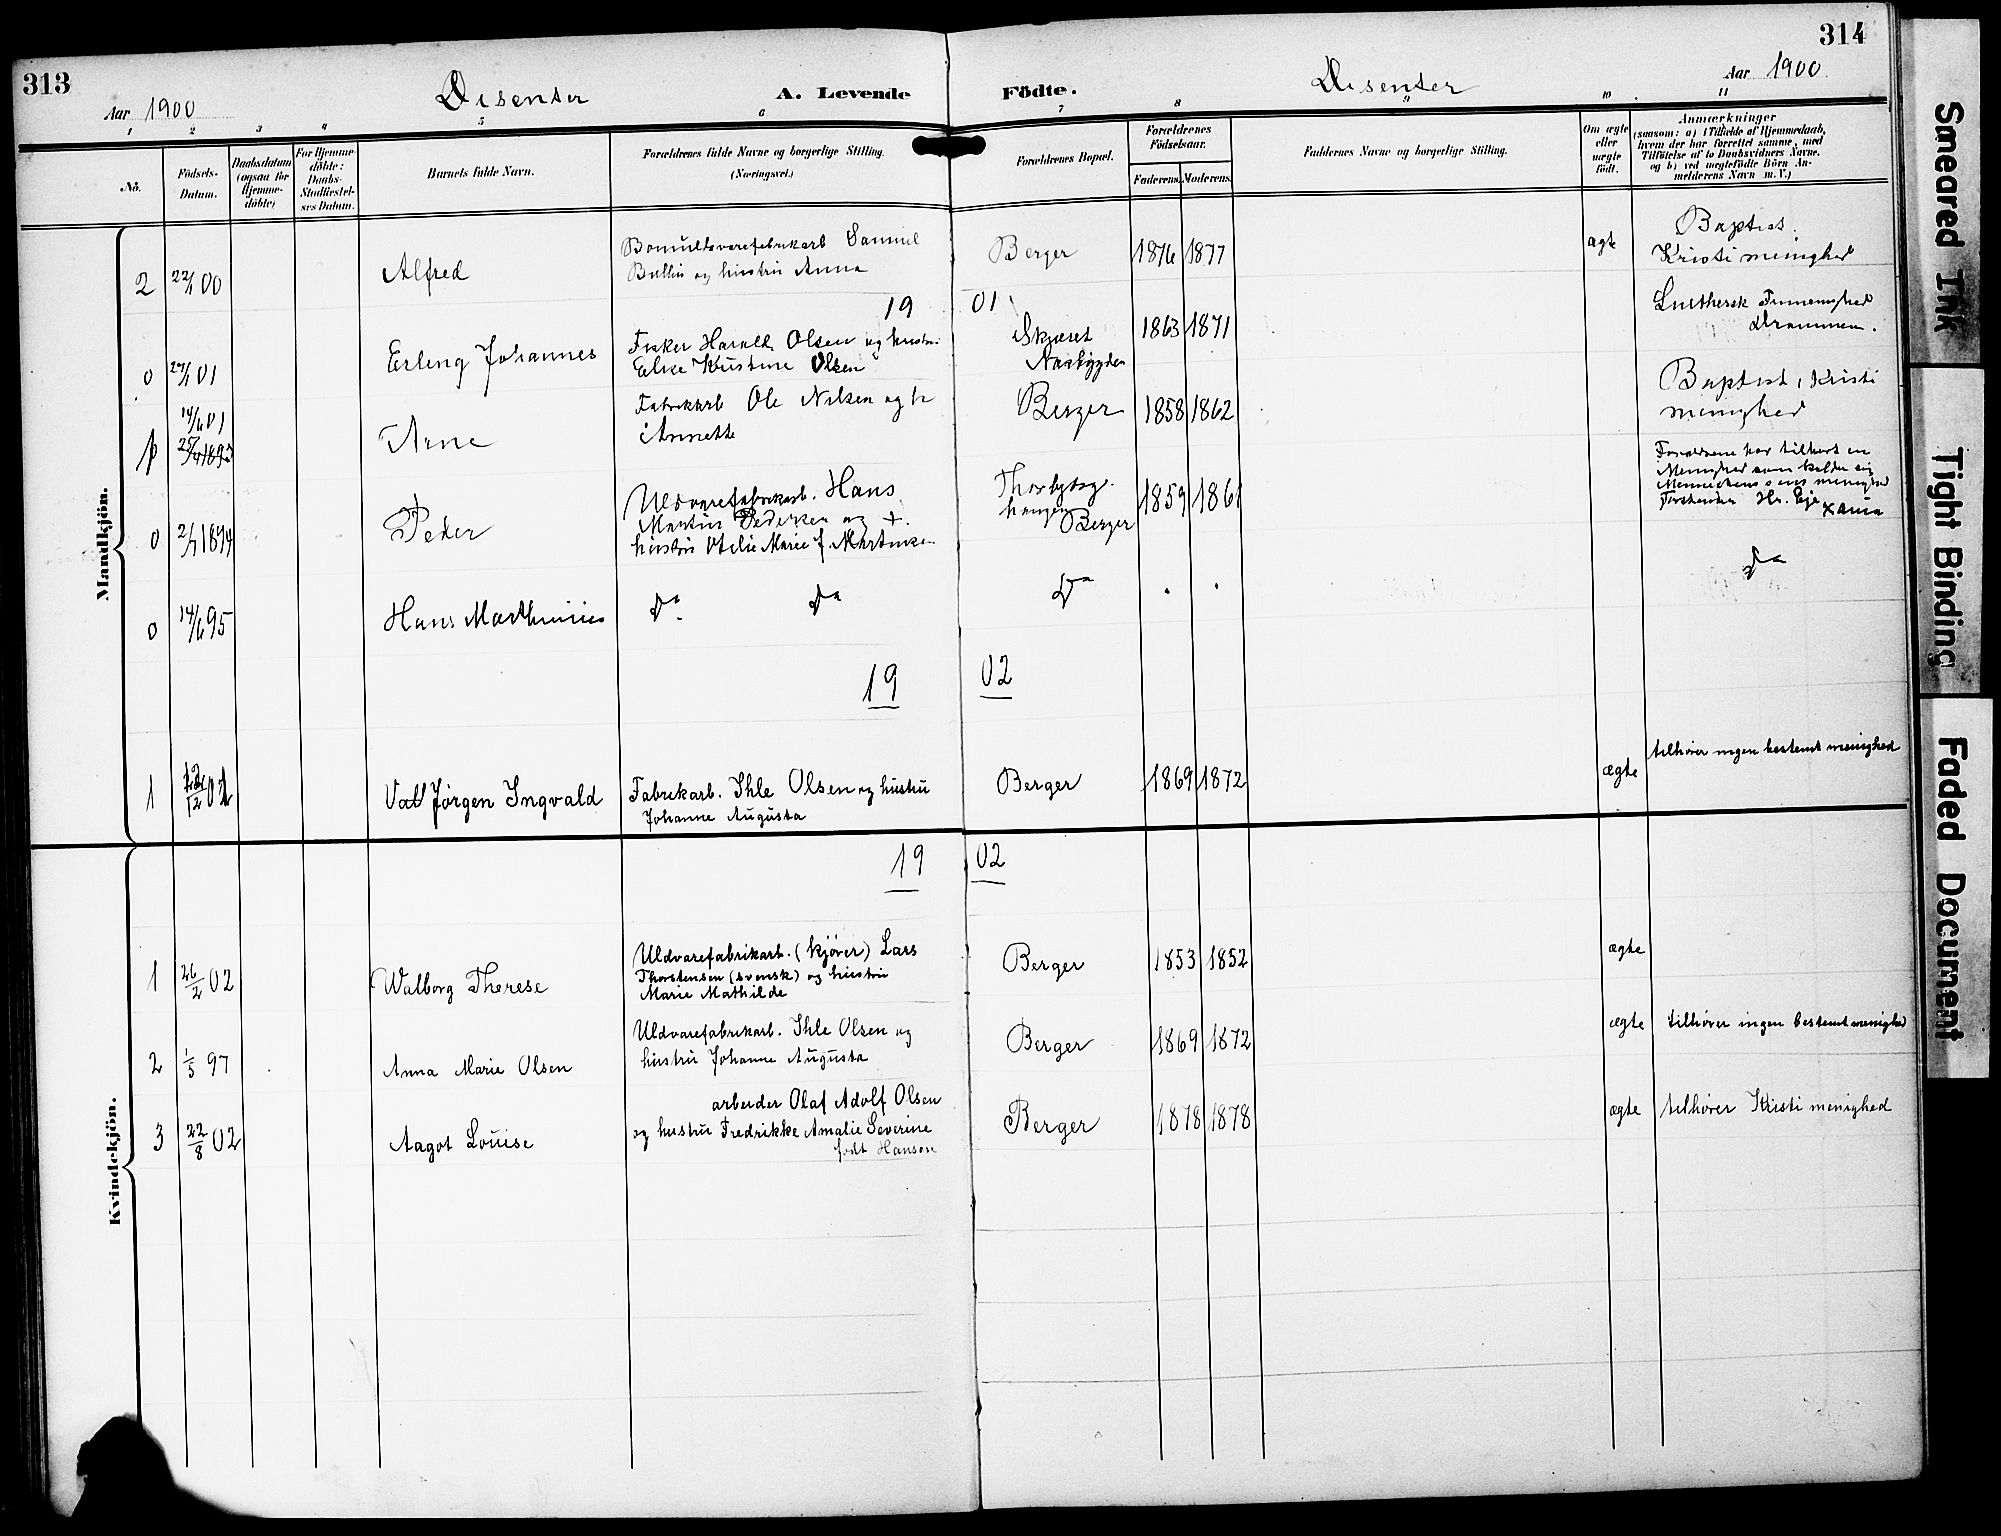 313
314
Aar 1900
Disenter
A. Levende
Födte.
Disenter
Aar 1900
1 2 3 4 5 6 7 8 9 10 11
No.
Födsels-
Datum.
Daabsdatum
(ogsaa for
Hjemme-
döbte)
For Hjemme-
döbte:
Daabs-
Stadfæstel-
ses Datum.
Barnets fulde Navn.
Forældrenes fulde Navne og borgerlige Stilling.
(Næringsvei.)
Forældrenes Bopæl.
Forældrenes
Födselsaar.
Faderens. Moderens.
Faddernes Navne og borgerlige Stilling.
Om ægte
eller
uægte
födt.
Anmærkninger
(saasom: a) i Tilfælde af Hjemmedaab,
hvem der har forrettet samme, med
Tilföielse af to Daabsvidners Navne.
og b) ved uægtefödte Börn An-
melderens Navn m. V.)
Mandkjön.
2 22/1 00 Alfred
Bomuldsvarefabrikarb Samuel
og hustru Anna
Berger 1876 1877 ægte
Baptist.
Kristi menighed
19 01
0 01 Erling Johannes
Fisker Harald Olsen og hustru
Elise Kristine Olsen
Skjæret
1863 1871
Luthersk Frimenighed
Drammen.
14/6 01
Arne
Fabrikarb Ole Nilsen og h
Annette
Berger 1858 1862
Baptist, Kristi
menighed
0 2/7 1894 Peder
Uldvarefabrikarb. Hans
Martin Pedersen og
hustru Otilie Marie f. Martinsen
Berger 1859 1861
Forældrene har tilhørt en
Menighed som kalder sig
Menneskens søns menighed
Forstander Hr. Eje Xania
0 14/6 95 Hans Marthinius
Do Do Do Do
19 02
1 Valf Jørgen Ingvald
Fabrikarb. Ihle Olsen og hustru
Johanne Augusta
Berger 1869 1872 ægte
tilhører ingen bestemt menighed
Kvindekjön.
19 02
1 26/2 02 Walborg Therese
Uldvarefabrikarb. (kjører) Lars
Thorstensen (svensk) og hustru
Marie Mathilde
Berger 1853 1852 ægte
2 1/5 97 Anna Marie Olsen
Uldvarefabrikarb. Ihle Olsen og
hustru Johanne Augusta
Berger 1869 1872 ægte tilhører ingen bestemt menighed
3 22/8 02 Aagot Louise
arbeider Olaf Adolf Olsen
og hustru Fredrikke Amalie Severine
født Hanson
Berger 1878 1878 ægte tilhører Kristi menighed
Smeared Ink
Tight Binding
Faded Document